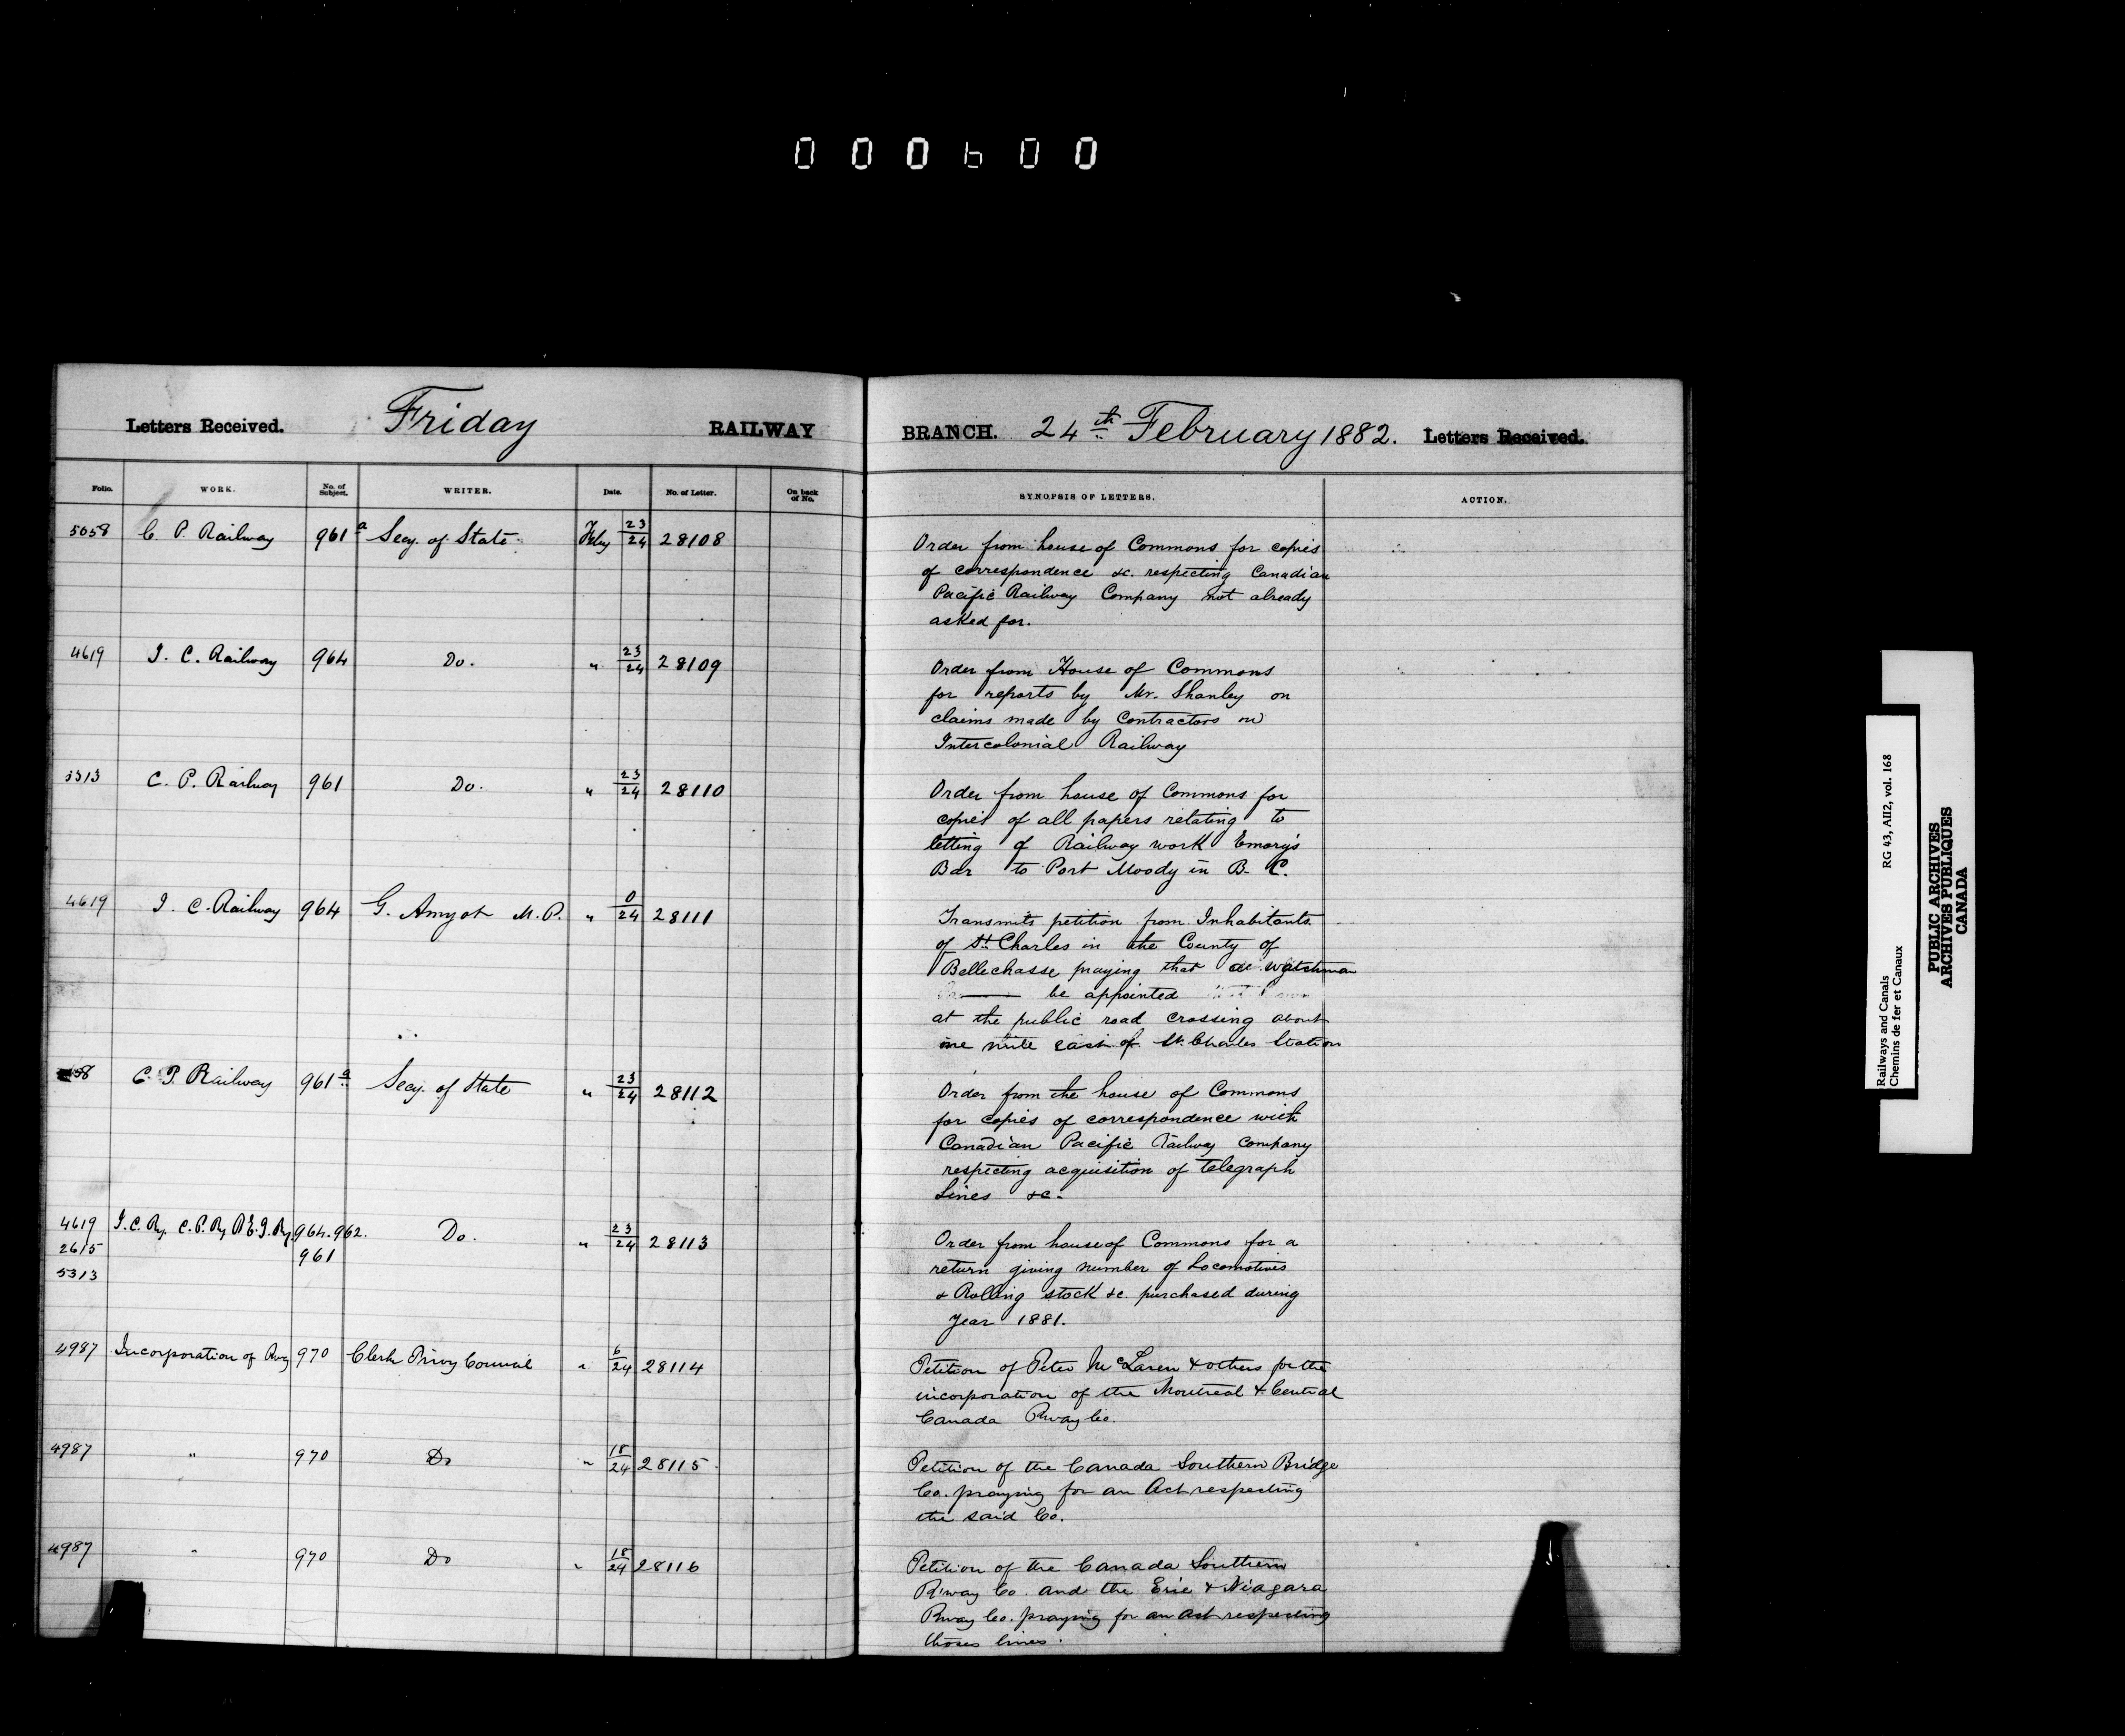 000600
Letters Received. Friday RAILWAY BRANCH. 24th February 1882. Letters Received.
Folio. WORK. No. of Subject. WRITER. Date. No. of Letter. On back of No. SYNOPSIS OF LETTERS. ACTION.
5058 C. P. Railway 961a Secy. of State Feby 23/24 28108
Order from house of Commons for copies
of correspondence &c. respecting Canadian
Pacific Railway Company not already
asked for.
4619 I. C. Railway 964 Do. " 23/24 28109
Order from House of Commons
for reports by Mr. Shanley on
claims made by Contractors on
Intercolonial Railway
5313 C. P. Railway 961 Do. " 23/24 28110
Order from house of Commons for
copies of all papers relating to
letting of Railway work Emory's
Bar to Port Moody in B. C.
4619 I. C. Railway 964 G. Amyot M.P. " 0/24 28111
Transmits petition from Inhabitants
of St. Charles in the County of
Bellechasse praying that a watchman
be appointed
at the public road crossing about
one mile east of St. Charles Station
58 C. P. Railway 961a Secy. of State " 23/24 28112
Order from the house of Commons
for copies of correspondence with
Canadian Pacific Railway Company
respecting acquisition of telegraph
Lines &c.
4619 I. C. Ry. C. P. Ry P.E.I. Ry 964. 962. Do. " 23/24 28113
2615 961
5313
Order from house of Commons for a
return giving number of Locomotives
& Rolling stock &c. purchased during
Year 1881.
4987 Incorporation of Rwy 970 Clerk Privy Council " 6/24 28114
Petition of Peter McLaren & others for the
incorporation of the Montreal & Central
Canada Rway Co.
4987 " 970 Do " 18/24 28115
Petition of the Canada Southern Bridge
Co. praying for an Act respecting
the said Co.
4987 " 970 Do " 18/24 28116
Petition of the Canada Southern
R'way Co. and the Erie & Niagara
Rway Co. praying for an act respecting
those lines.
Railways and Canals RG 43, AII2, vol. 168
Chemins de fer et Canaux
PUBLIC ARCHIVES
ARCHIVES PUBLIQUES
CANADA